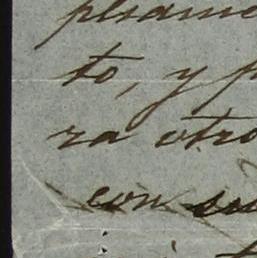 plsame
to, y p
ra otro
con su